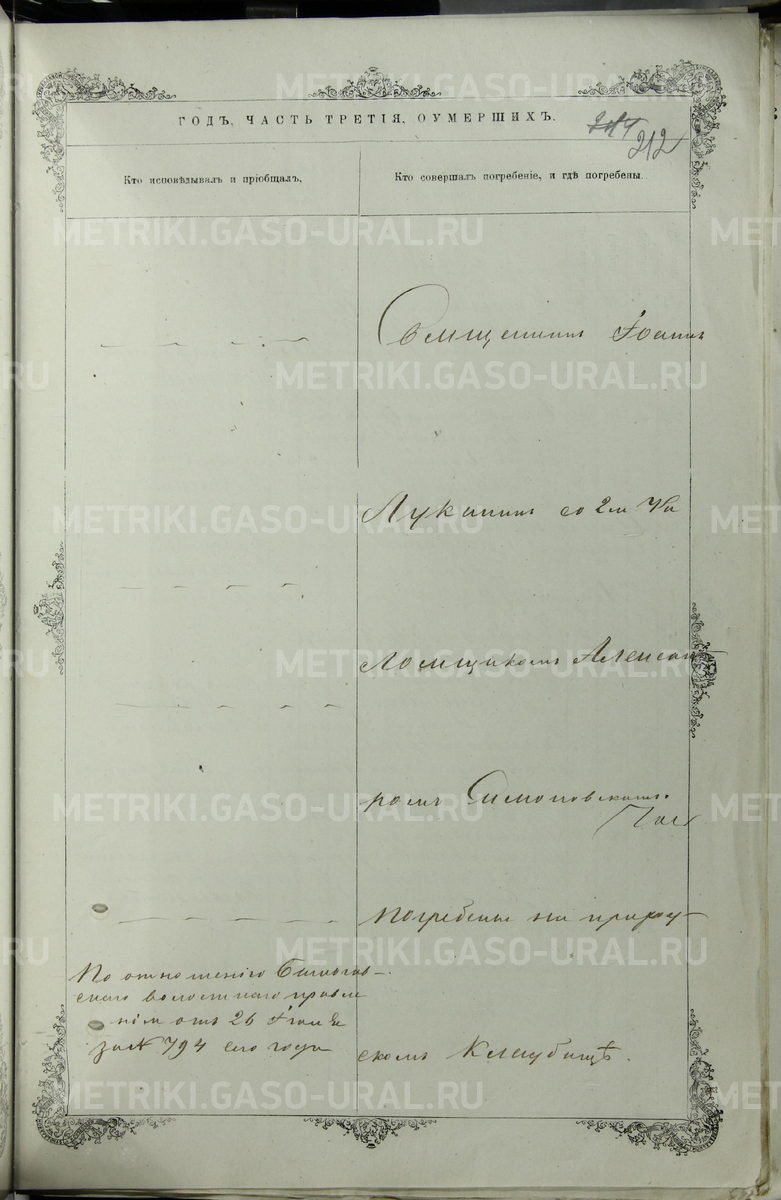 ГОДЪ, ЧАСТЬ ТРЕТІЯ, ОУМЕРШИХЪ.
212
Кто исповѣдывалъ и пріобщалъ,
Кто совершалъ погребеніе, и гдѣ погребены.
Священникъ Іоаннъ
Луканинъ со 2мъ
ломщикомъ Алексан
ромъ Симоновскимъ.
погребены на приход
скомъ кладбищѣ.
По отношенію
скаго волостнаго правле
нія отъ 26 Іюля
за № 794 сего года
METRIKI.GASO-URAL.RU